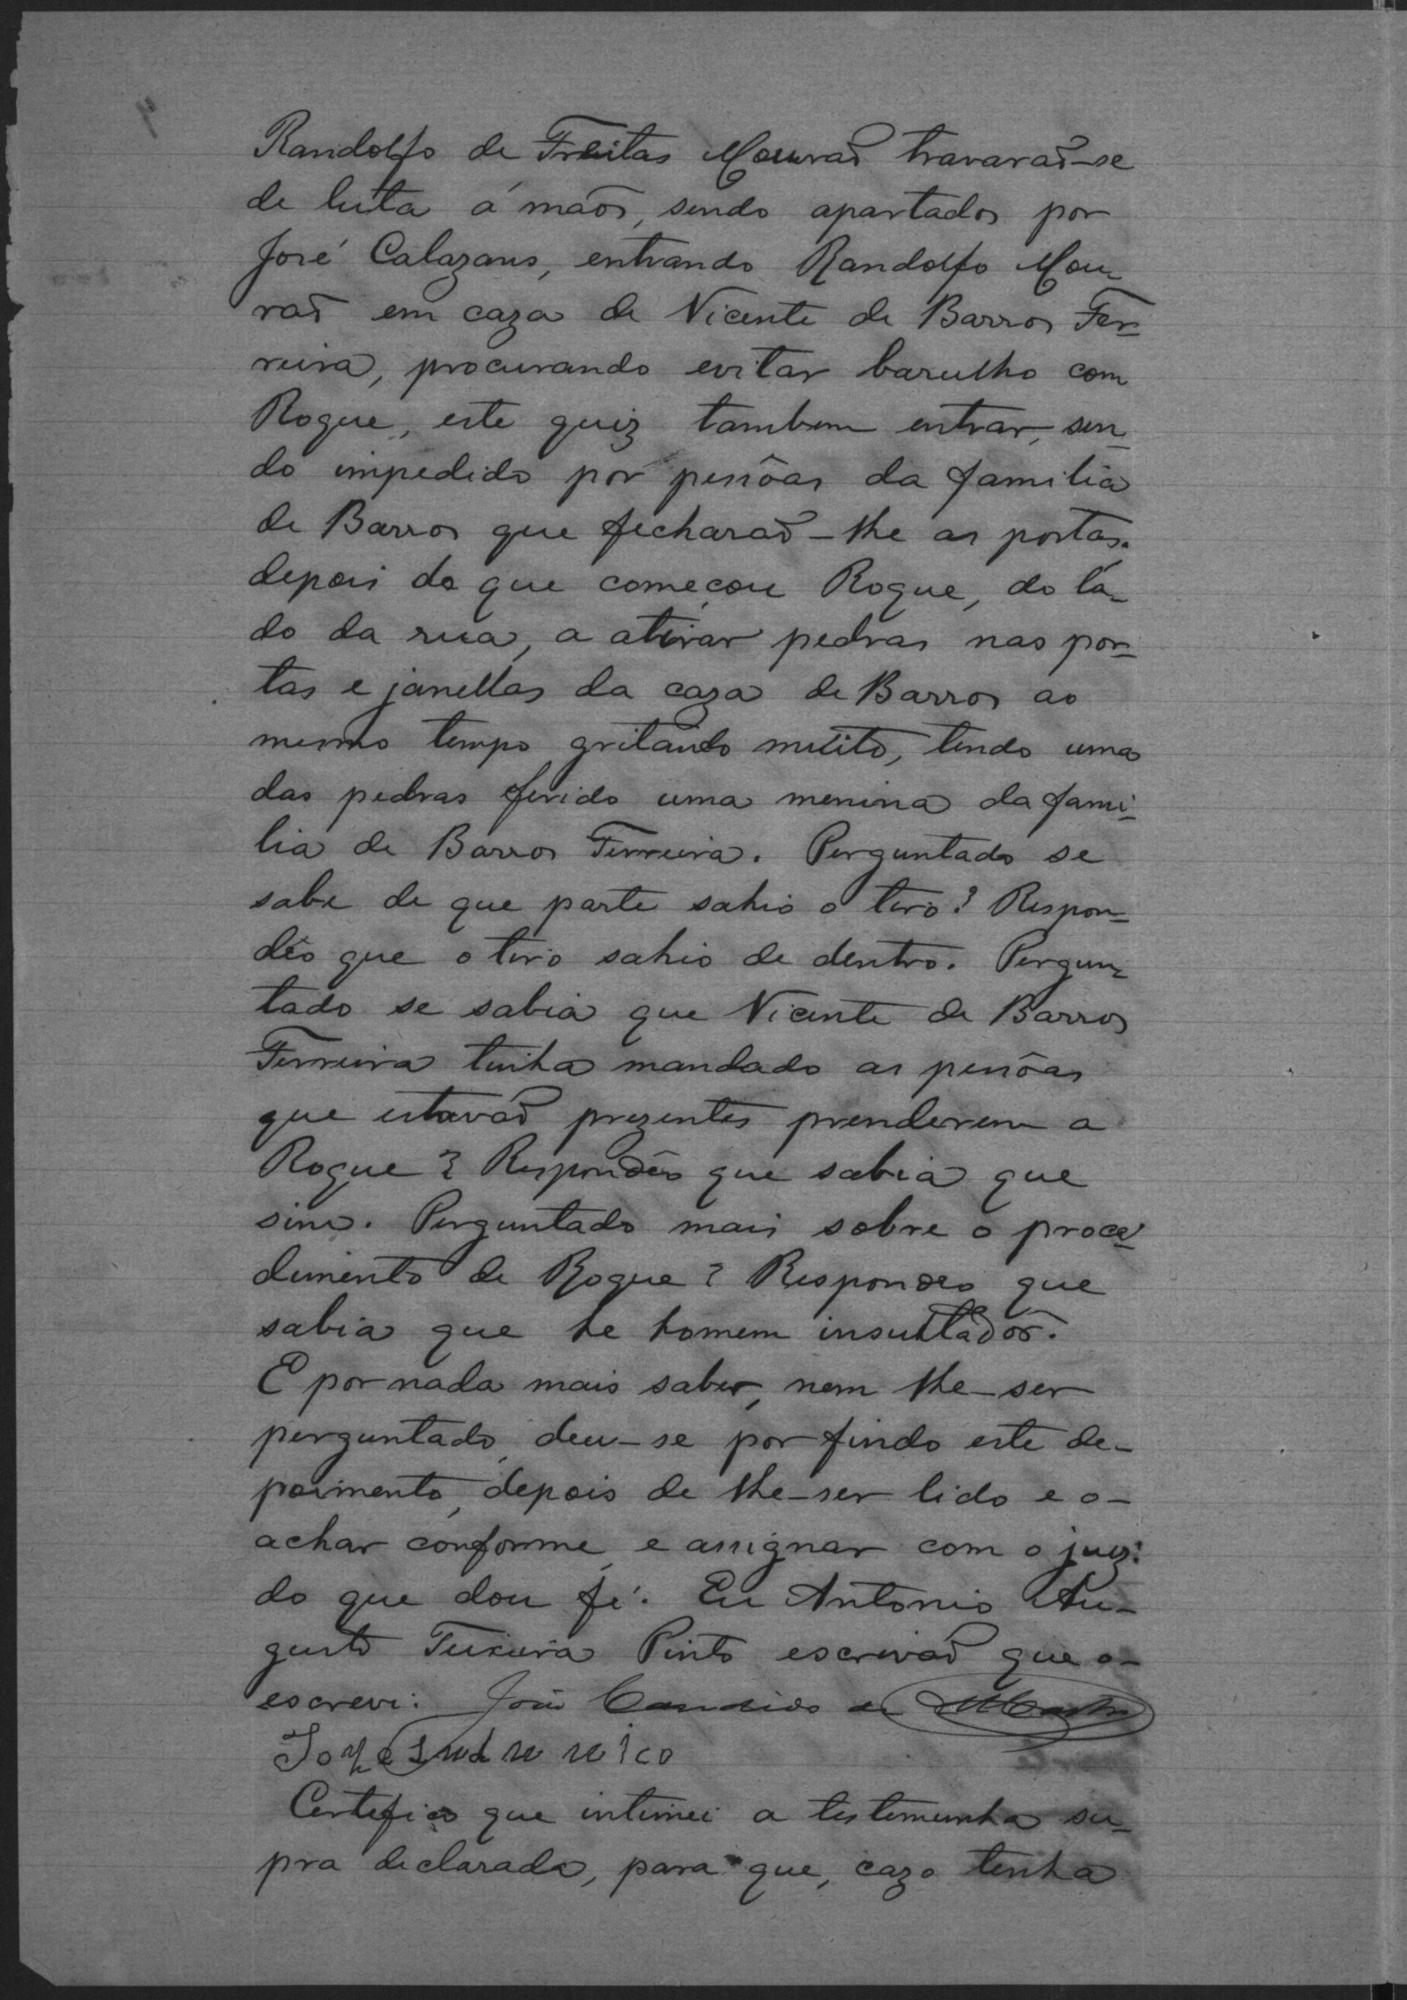 Randolfo de Freitas Mouraõ travaraõ-se
de luta á maõs, sendo apartados por
José Calazans, entrando Randolfo Mou-
raõ em caza de Vicente de Barros Fer-
reira, procurando evitar barulho com
Roque, este quiz tambem entrar, sen-
do impedido por pessôas da familia
de Barros que fecharaõ-lhe as portas.
depois do que começou Roque, do la-
do da rua, a atirar pedras nas por-
tas e janellas da caza de Barros ao
mesmo tempo gritando muito, tendo uma
das pedras ferido uma menina da fami-
lia de Barros Ferreira. Perguntado se
sabe de que parte sahio o tiro? Respon-
dêo que o tiro sahio de dentro. Pergun-
tado se sabia que Vicente de Barros
Ferreira tinha mandado as pessôas
que estavaõ prezentes prenderem a
Roque? Respondêo que sabia que
sim. Perguntado mais sobre o proce-
dimento de Roque? Respondeo que
sabia que he homem insultador.
E por nada mais saber, nem lhe-ser
perguntado, deu-se por findo este de-
poimento, depois de lhe-ser lido e o-
achar conforme, e assignar com o juiz:
do que dou fé. Eu Antonio Au-
gusto Teixeira Pinto escrivaõ que o-
escrevi: João Candido de
Certefico que intimei a testemunha su-
pra declarada, para que, cazo tenha